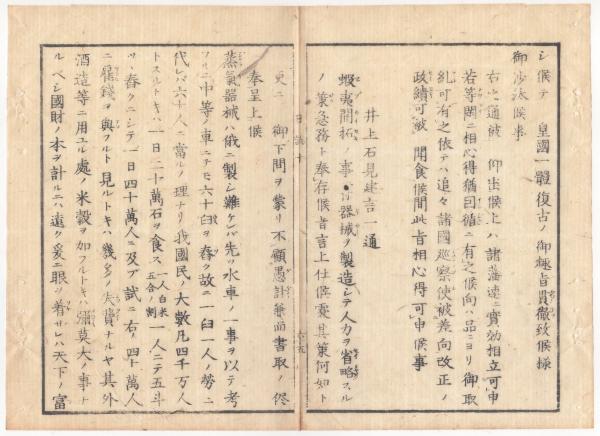 シ候テ 皇國一體復古ノ御趣旨貫徹致候樣
御沙汰候事
右之通被 仰出候上ハ諸藩速ニ實効相立可申
若等閑ニ相心得猶因循ニ有之候向ハ品ニヨリ御取
糺可有之依テハ追々諸國巡察使被差向改正ノ
政績可被 聞食候間此旨相心得可申候事
井上石見建言一通
蝦夷開拓ノ事 器械ヲ製造シテ人力ヲ省略スル
ノ策急務ト奉存候者言上仕候處其策何如ト
更ニ 御下問ヲ蒙リ不顧愚計兼而書取ノ侭
奉呈上候
蒸氣器械ハ俄ニ製シ難ケレバ先ツ水車ノ一事ヲ以テ考
フルニ中等ノ車ニテモ六十臼ヲ舂ク故ニ一臼一人ノ勞ニ
代レバ六十人ニ當ルノ理ナリ我國民ノ大數凡四千万人
トスルトキハ一日二十萬石ヲ食ス一人白米五合ノ割一人ニテ五斗
ツヽ舂クニシテ一日四十萬人ニ及ブ試ニ右ノ四十萬人
ニ雇錢ヲ與フルト見ルトキハ幾多ノ大費ナルヤ其外
酒造等ニ用ユル處ノ米穀ヲ加フルトキハ彌莫大ノ事ナ
ルベシ國財ノ本ヲ計ルニハ遠ク爰ニ眼ヲ着サレハ天下ノ富